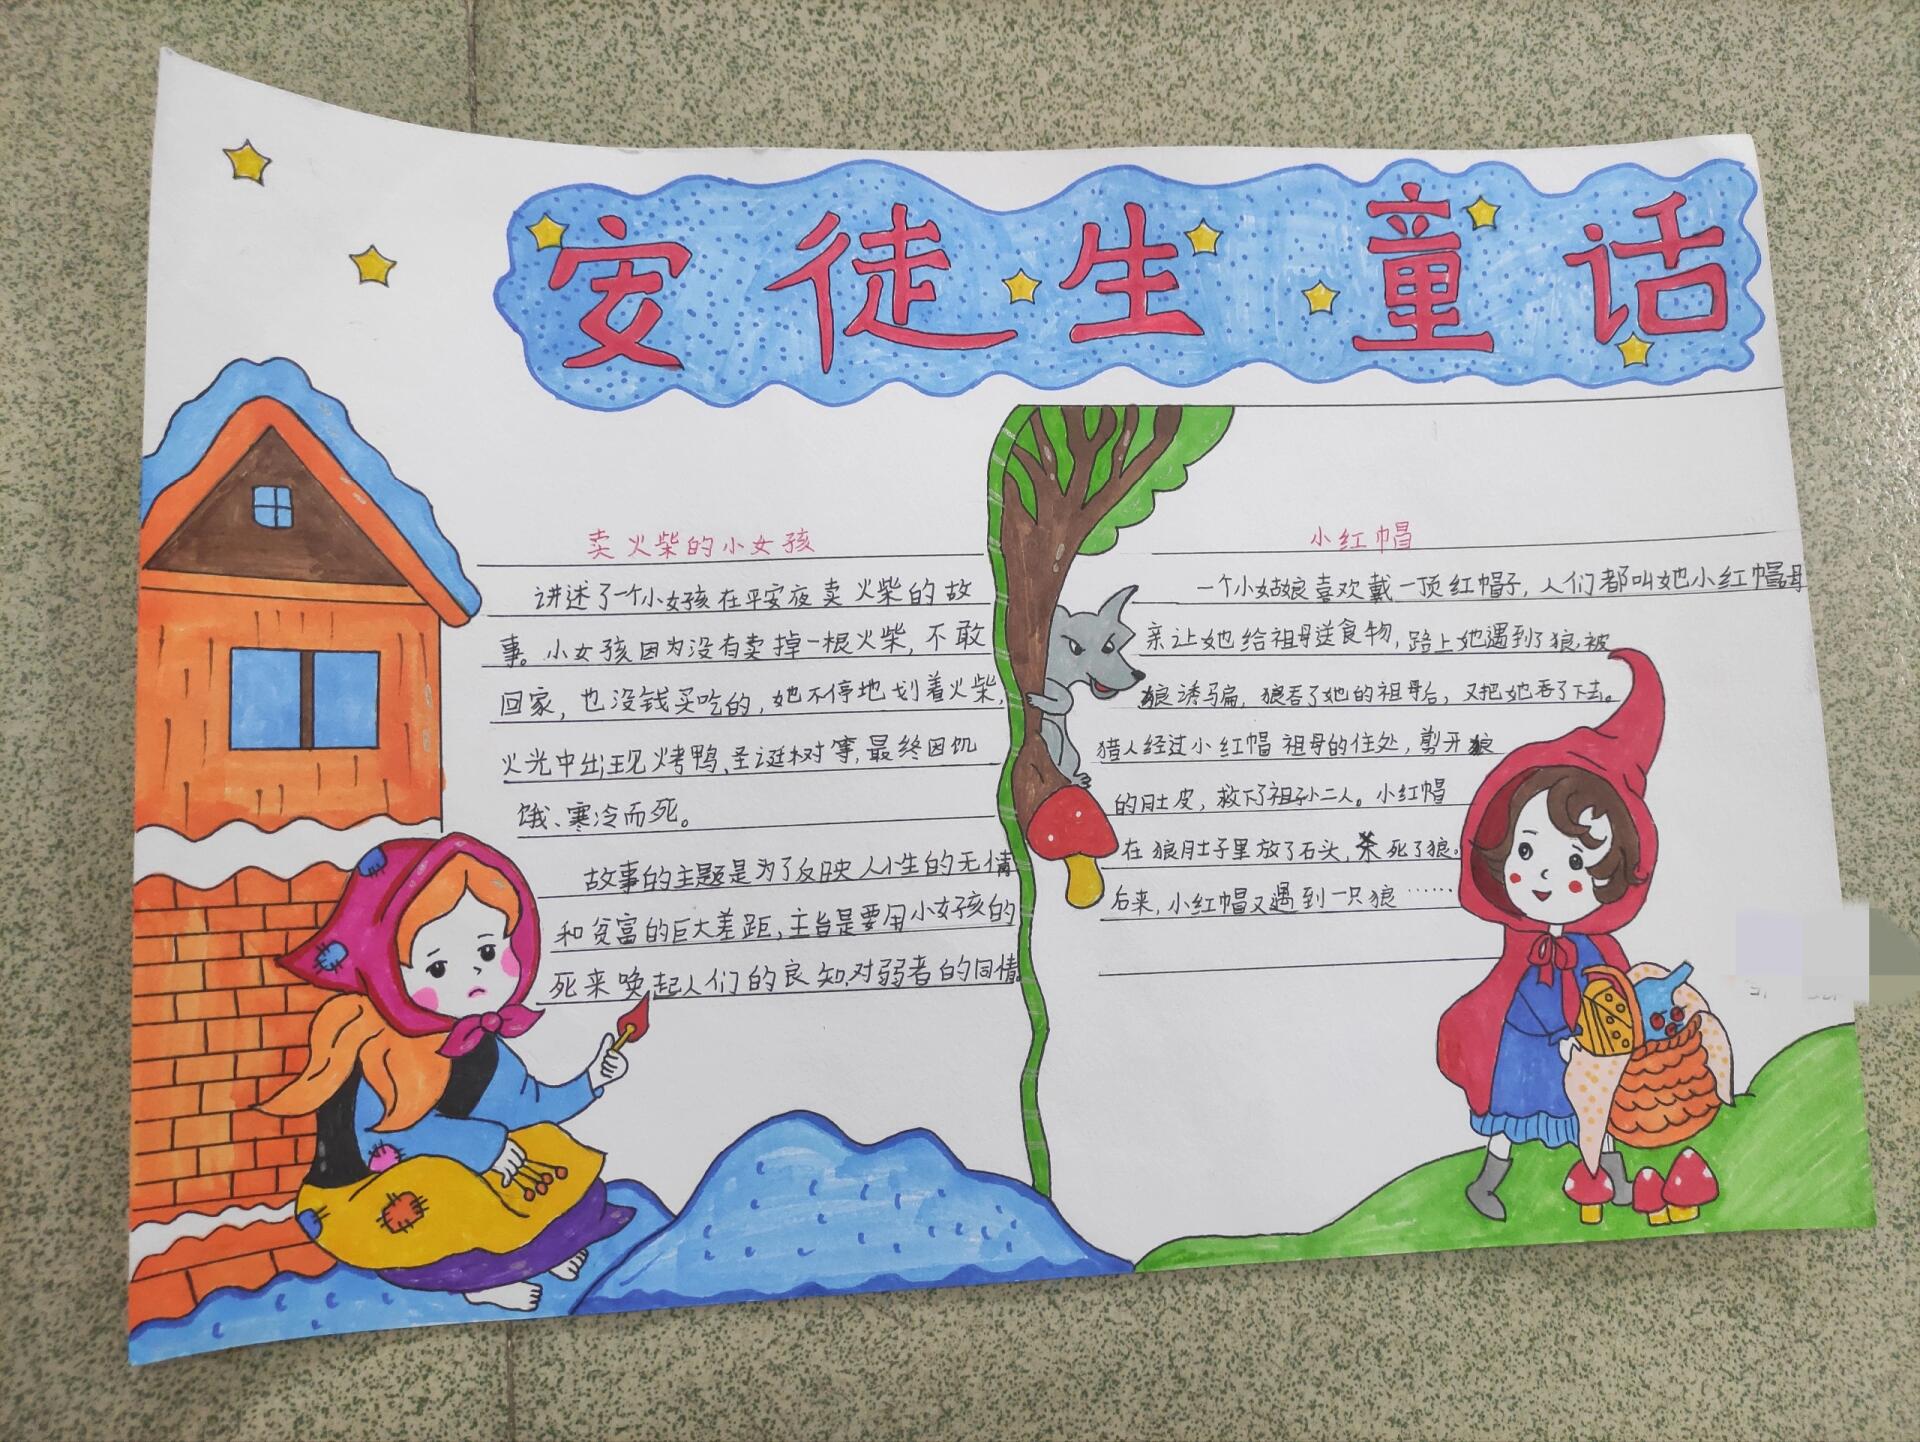 安徒生童话
卖火柴的小女孩
讲述了一个小女孩在平安夜卖火柴的故
事。小女孩因为没有卖掉一根火柴，不敢
回家，也没钱买吃的，她不停地划着火柴，
火光中出现烤鸭、圣诞树等，最终因饥
饿、寒冷而死。
故事的主题是为了反映人生的无情
和贫富的巨大差距，主旨是要用小女孩的
死来唤起人们的良知，对弱者的同情
小红帽
一个小姑娘喜欢戴一顶红帽子，人们都叫她小红帽母
亲让她给祖母送食物，路上她遇到了狼，被
狼诱骗，狼吞了她的祖母后，又把她吞了下去。
猎人经过小红帽祖母的住处，剪开狼
的肚皮，救下了祖孙二人。小红帽
在狼肚子里放了石头，杀死了狼。
后来，小红帽又遇到一只狼……